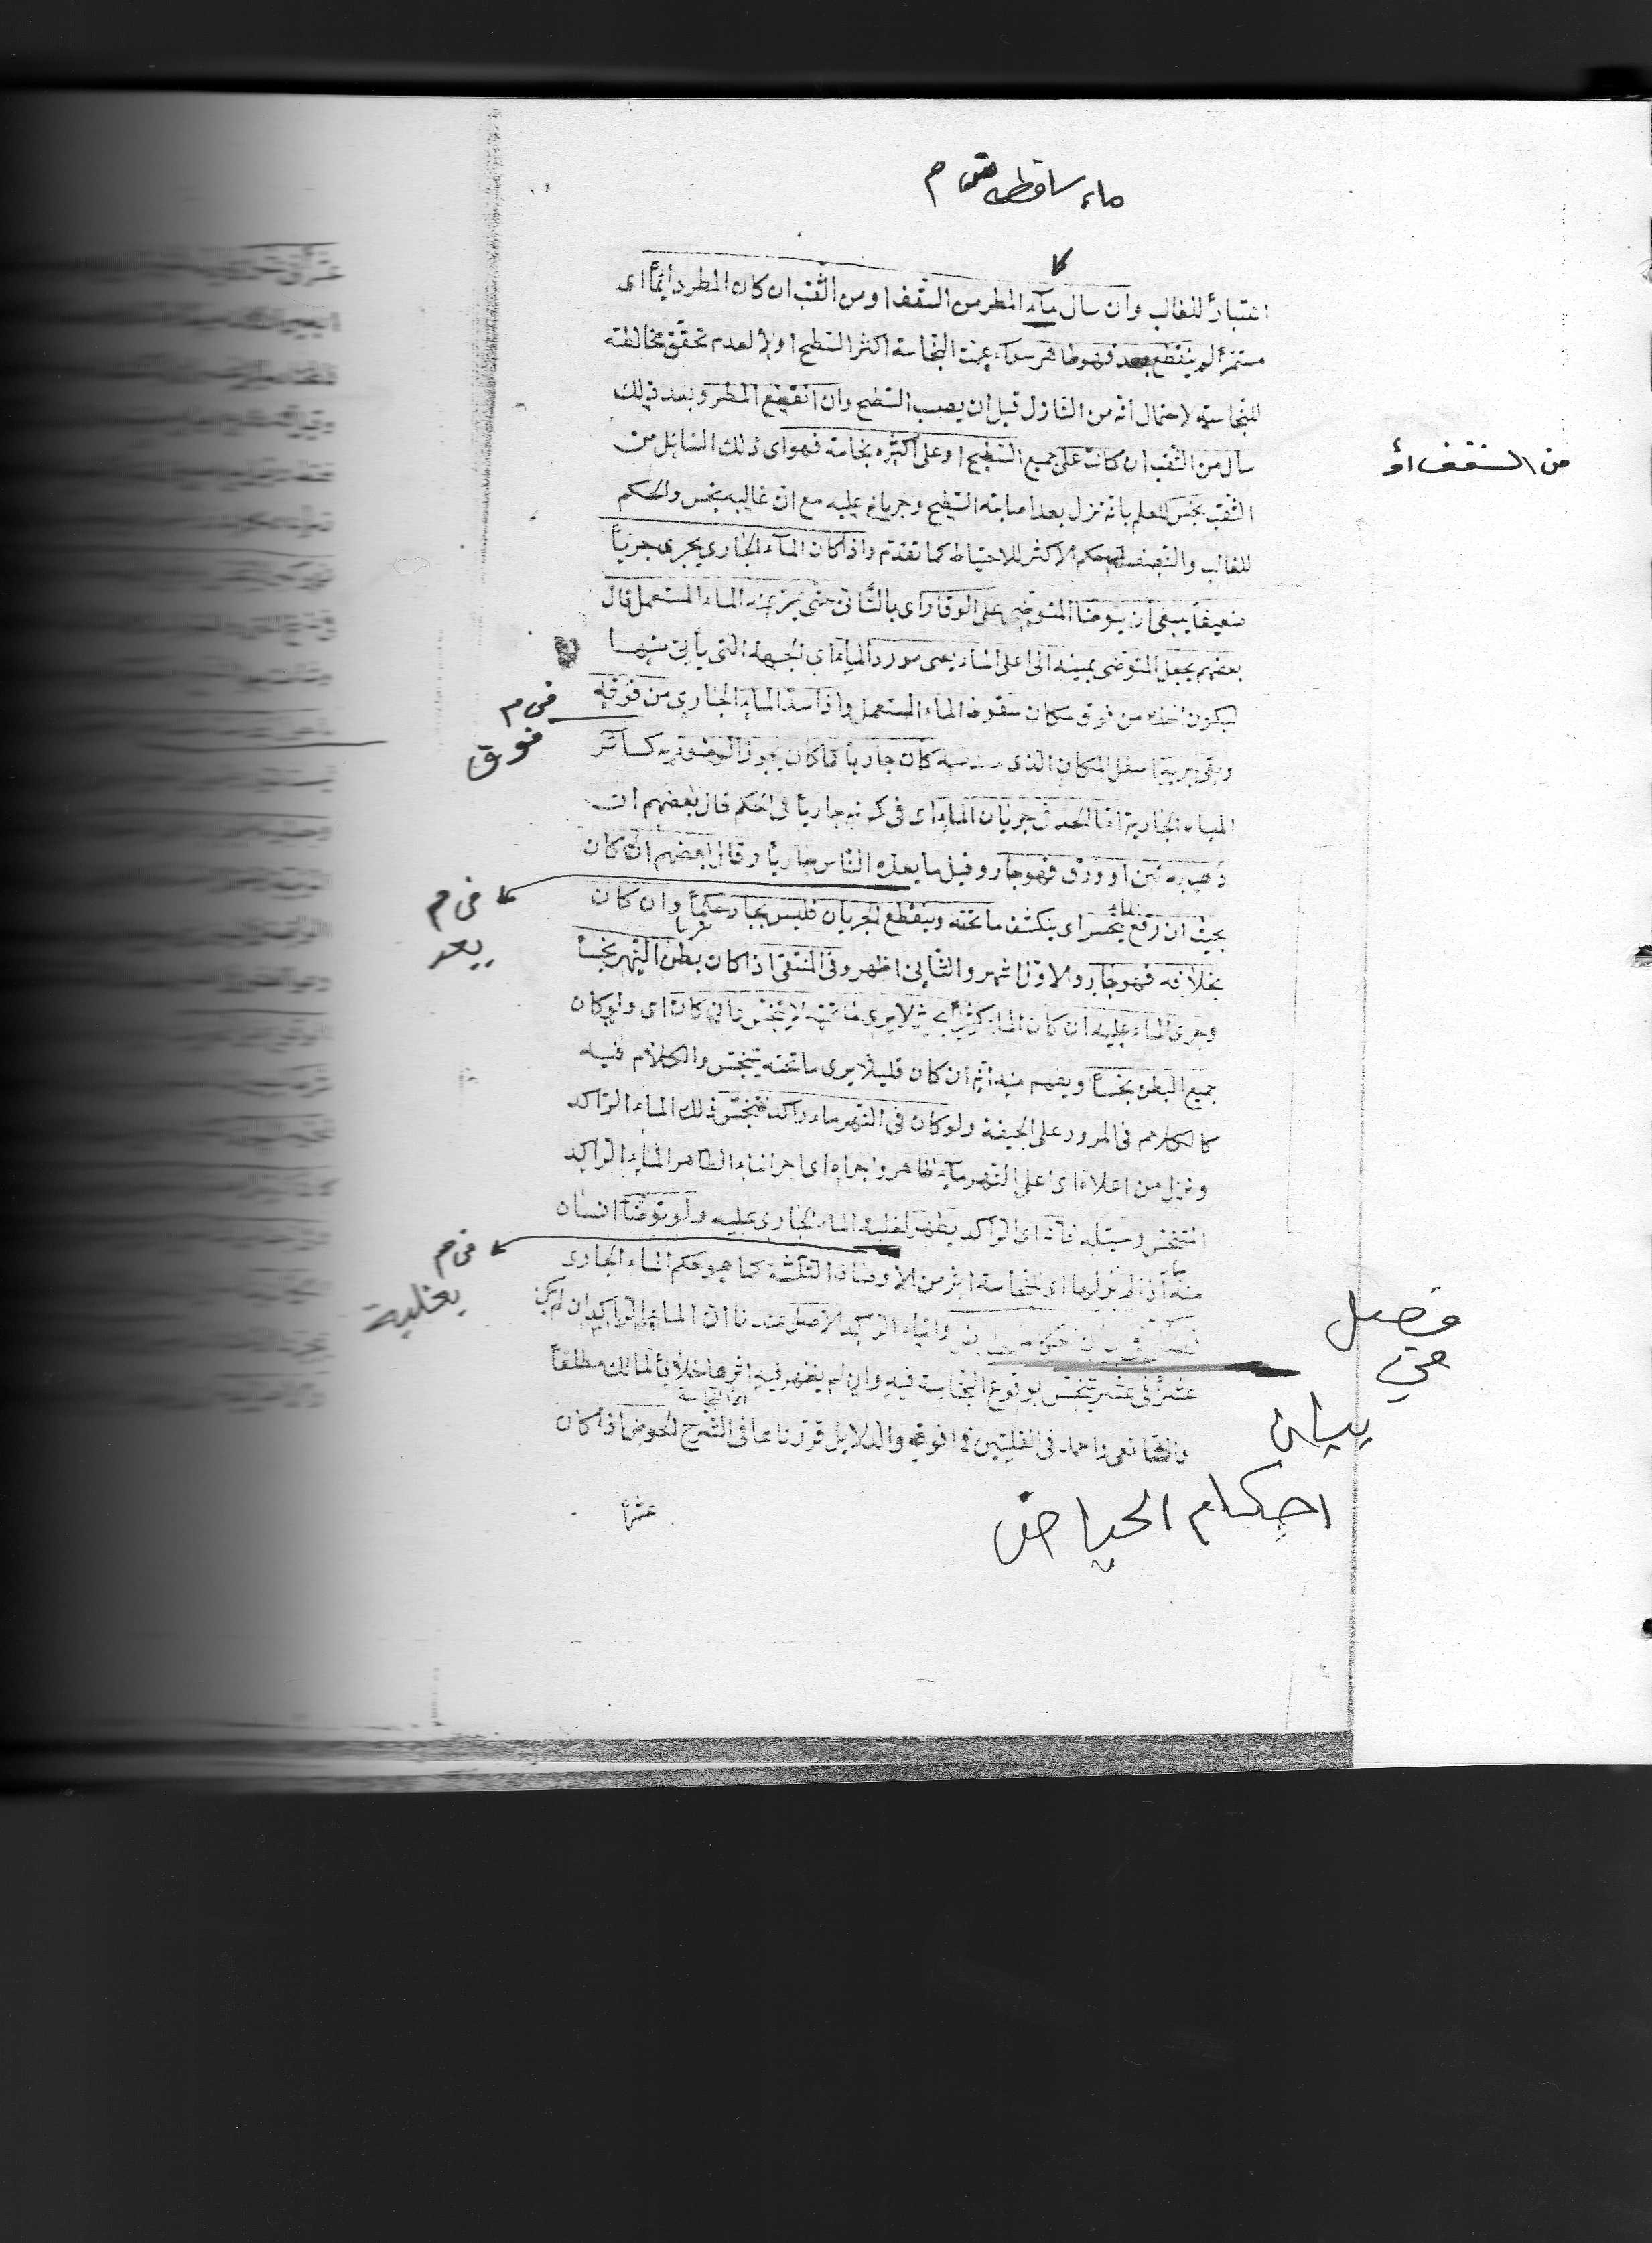 ماء ساقطه من م
اعتبارأ للغالب وان سال مآء المطر من السقف او من الثقب ان كان المطر دايمًا اى
مستمرًا لم ينقطع بعد فهو طاهر سوآء عمت النجاسة اكثر السطح اولا لعدم تحقق مخالطته
للنجاسة لاحتمال انه من النازل قبل ان يصيب السطح وان انقطع المطر وبعد ذلك
سال من الثقب ان كانت على جميع السطح او على اكثره نجاسة فهو اى ذلك السائل من
من السقف او
الثقب نجس للعلم بانه نزل بعد اصابته السطح وجريانه عليه مع ان غالبه نجس والحكم
للغالب والنصف حكم الاكثر للاحتياط كما تقدم واذا كان المآء الجارى يجرى جريًا
ضعيفًا ينبغى ان يتوضأ المتوضى على الوقار اى بالتأنى حتى يمر عنه الماء المستعمل قال
بعضهم يجعل المتوضى يمينه الى اعلى الماء يعنى مورد الماء اى الجهة التى يأتى منها
ليكون اخذه من فوق مكان سقوط الماء المستعمل واذا سد الماء الجارى من فوقه
فى م
فوق
وبقى جريه اسفل المكان الذى سد منه كان جاريًا كما كان يجوز الوضوء به كسائر
المياه الجارية اما الحد فى جريان الماء اى فى كونه جاريًا فى الحكم قال بعضهم ان
ذهب به تبن او ورق فهو جار وقيل ما يعده الناس جاريًا وقال بعضهم ان كان
فى م
يعد
بحيث ان رفع ينحسر اى ينكشف ما تحته وينقطع الجريان فليس بجار حكمًا وان كان
بخلافه فهو جار والاول اشهر والثانى اظهر وفى المنتقى اذا كان بطن النهر نجسًا
وجرى الماء عليه ان كان الماء كثيرًا بحيث لا يرى ما تحته لا يتنجس وان كان اى ولو كان
جميع البطن نجسًا ويفهم منه انه ان كان قليلا يرى ما تحته يتنجس والكلام فيه
كالكلام فى المرور على الجيفة ولو كان فى النهر ماء راكد فتنجس ذلك الماء الراكد
ونزل من اعلاه اى اعلى النهر مآء طاهر واجراه اى اجرا الماء الطاهر الماء الراكد
المتنجس وسيّله فانه اى الراكد يطهر لغلبة الماء الجارى عليه ولو توضأ انسان
فى م
بغلبة
منه اذا لم ير لها اى للنجاسة اثر من الاوصاف الثلثة كما هو حكم الماء الجارى
فصل فى بيان احكام الحياض والمياه الراكد الاصل عندنا ان الماء الراكد ان لم يكن
عشرًا فى عشر يتنجس بوقوع النجاسة فيه وان لم يظهر فيه اثرها خلافًا لمالك مطلقًا
اى النجاسة
والشافعى واحمد فى القلتين فما فوقه والدلايل قررناها فى الشرح الحوض اذا كان
عشرًا
فصل
في
بيان
احكام الحياض